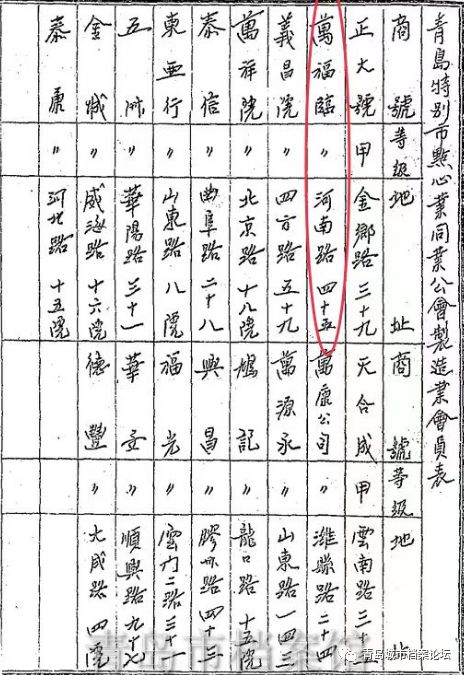 青島特別市點心業同業公會製造業會員表
商號 等級 地址 商號 等級 地址
正大號 甲 金鄉路三十九 天合成 甲 雲南路三十
萬福臨 〃 河南路四十五 萬康公司 〃 濰縣路二十四
義昌號 〃 四方路五十九 萬源永 〃 山東路一四三
萬祥號 〃 北京路十八號 記 〃 龍口路十五號
泰信 〃 曲阜路二十八 興昌 〃 膠州路四十三
東亜行 〃 山東路八號 福光 〃 雲門二路三十一
五洲 〃 華陽路三十一 華 〃 順興路九十七
金城 〃 威海路十六號 德豐 〃 大成路四號
泰康 〃 河北路十五號
青岛市档案馆
青岛城市档案论坛